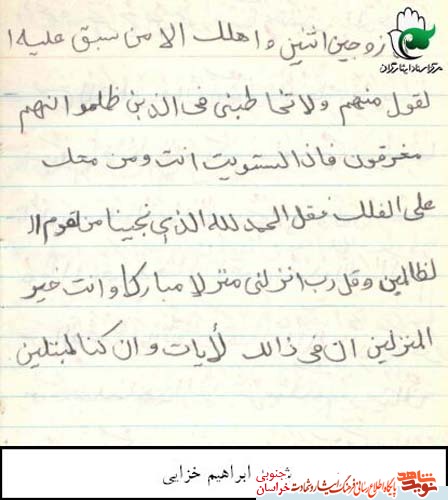 زوجین اثنین و اهلك الا من سبق علیه ا
لقول منهم ولا تخاطبنی فی الذین ظلموا انهم
مغرقون فاذا استویت انت و من معك
علی الفلك فقل الحمد لله الذی نجینا من القوم ال
لظالمین وقل رب انزلنی منزلا مبارکا و انت خیر
المنزلین ان فی ذالك لأیات و ان کنا لمبتلین
مرکز اسناد ایثارگران
ابراهیم خزایی
خراسان جنوبی
پایگاه اطلاع رسانی فرهنگ ایثار و شهادت
نوید شاهد